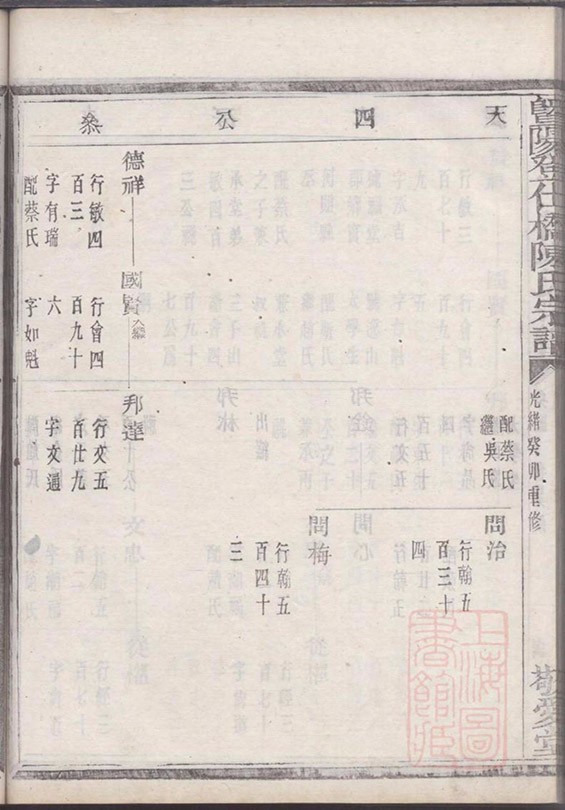 暨陽登仕橋陳氏宗譜
光緒癸卯重修
敬愛堂
天四公叅
配蔡氏
繼吳氏
問治
行翰五
百三十
四
問梅
行翰五
百四十
三
德祥
國賢
邦達
行敏四
百三
字有瑞
配蔡氏
行會四
百九十
六
字如魁
行文五
百廿九
字文通
上海圖
書館藏